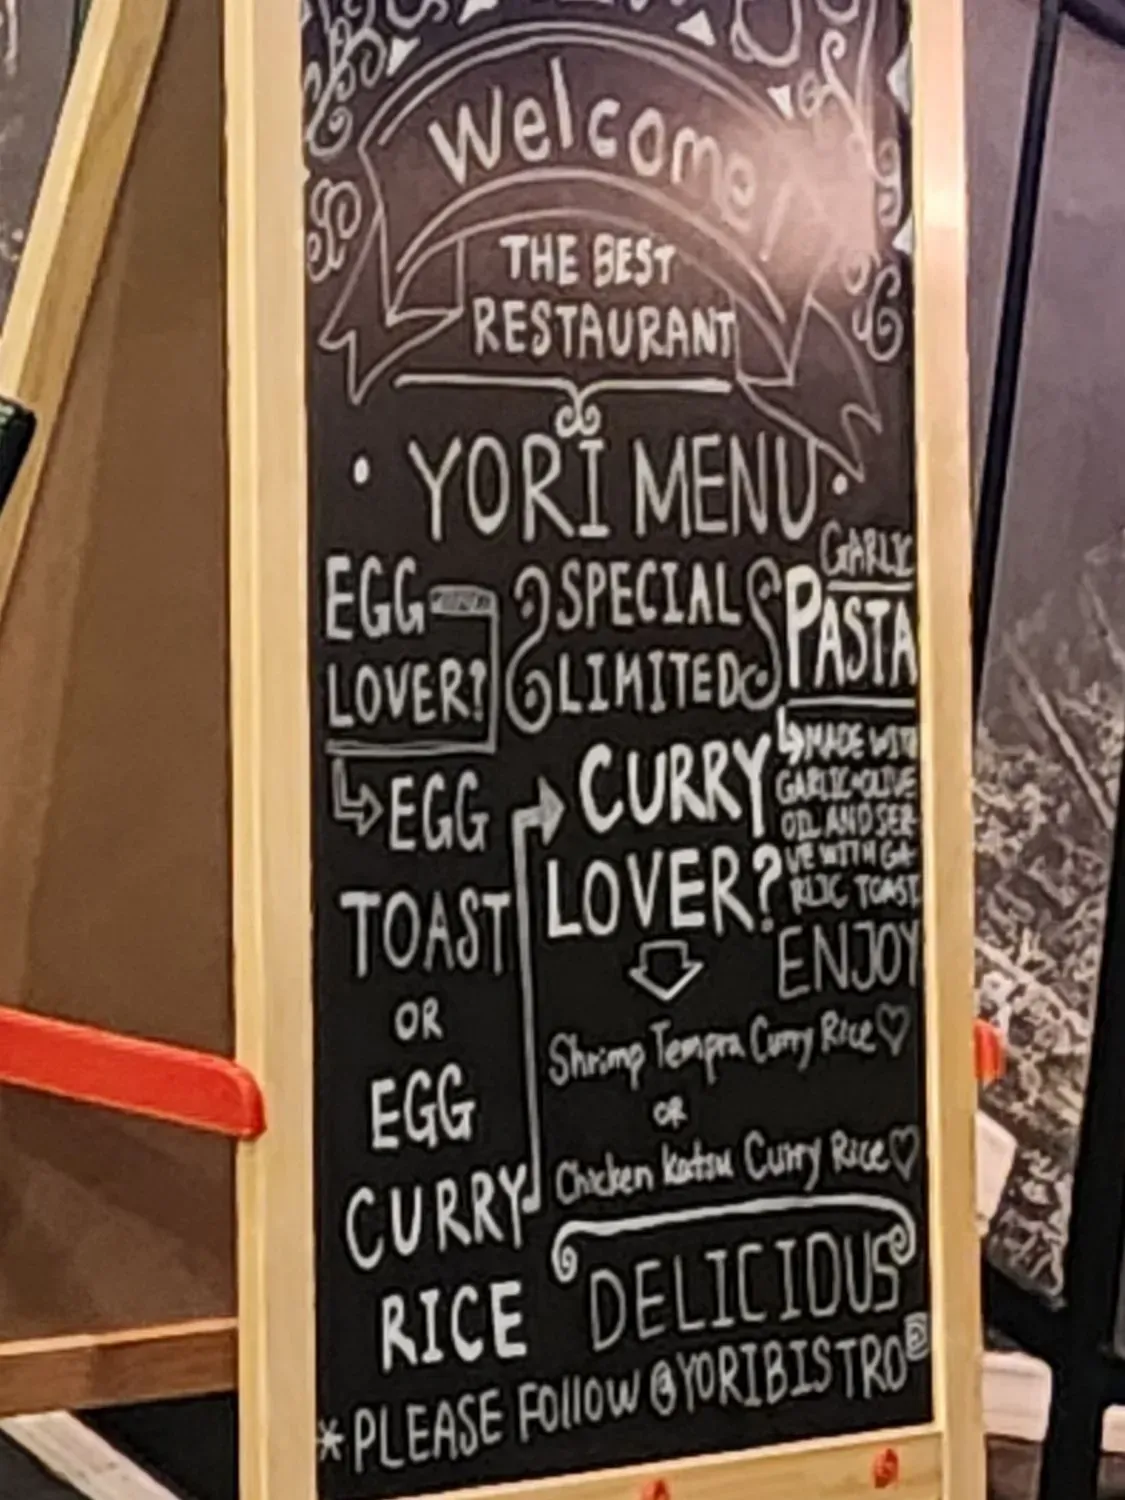 Welcome!
THE BEST
RESTAURANT
• YORI MENU •
EGG
LOVER?
EGG
TOAST
OR
EGG
CURRY
RICE
SPECIAL
LIMITED
CURRY
LOVER?
Shrimp Tempra Curry Rice ♡
OR
Chicken Katsu Curry Rice ♡
GARLIC
PASTA
MADE WITH
GARLIC OLIVE
OIL AND SER-
VE WITH GA-
RLIC TOAST
ENJOY
DELICIOUS
* PLEASE FOllOW @YORIBISTRO